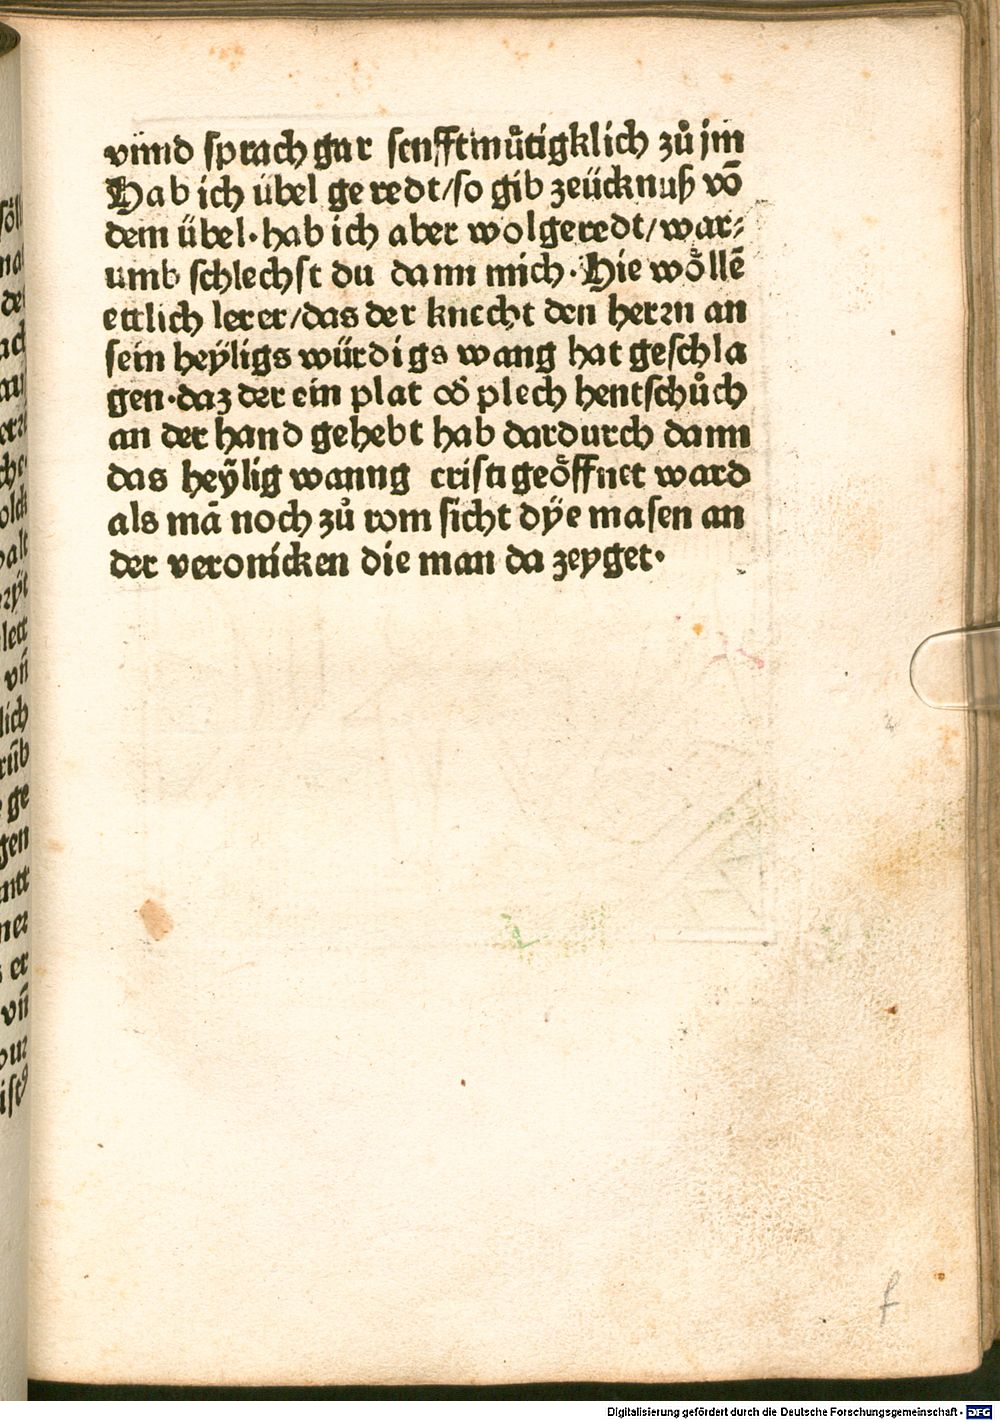 vnnd sprach gar senfftmůtigklich zů jm
Hab ich übel ge redt/so gib zeücknuß vō
dem übel·hab ich aber wolgeredt/war⸗
umb schlechst du dann mich·Hie wöllē
ettlich lerer/das der knecht den herꝛn an
sein heÿligs würdigs wang hat geschla
gen·daz der ein plat od̛ plech hentschůch
an der hand gehebt hab dardurch dann
das heÿlig wanng cristi geöffnet ward
als mā noch zů rom sicht dÿe masen an
der veronicken die man da zeyget·
f
Digitalisierung gefördert durch die Deutsche Forschungsgemeinschaft - DFG